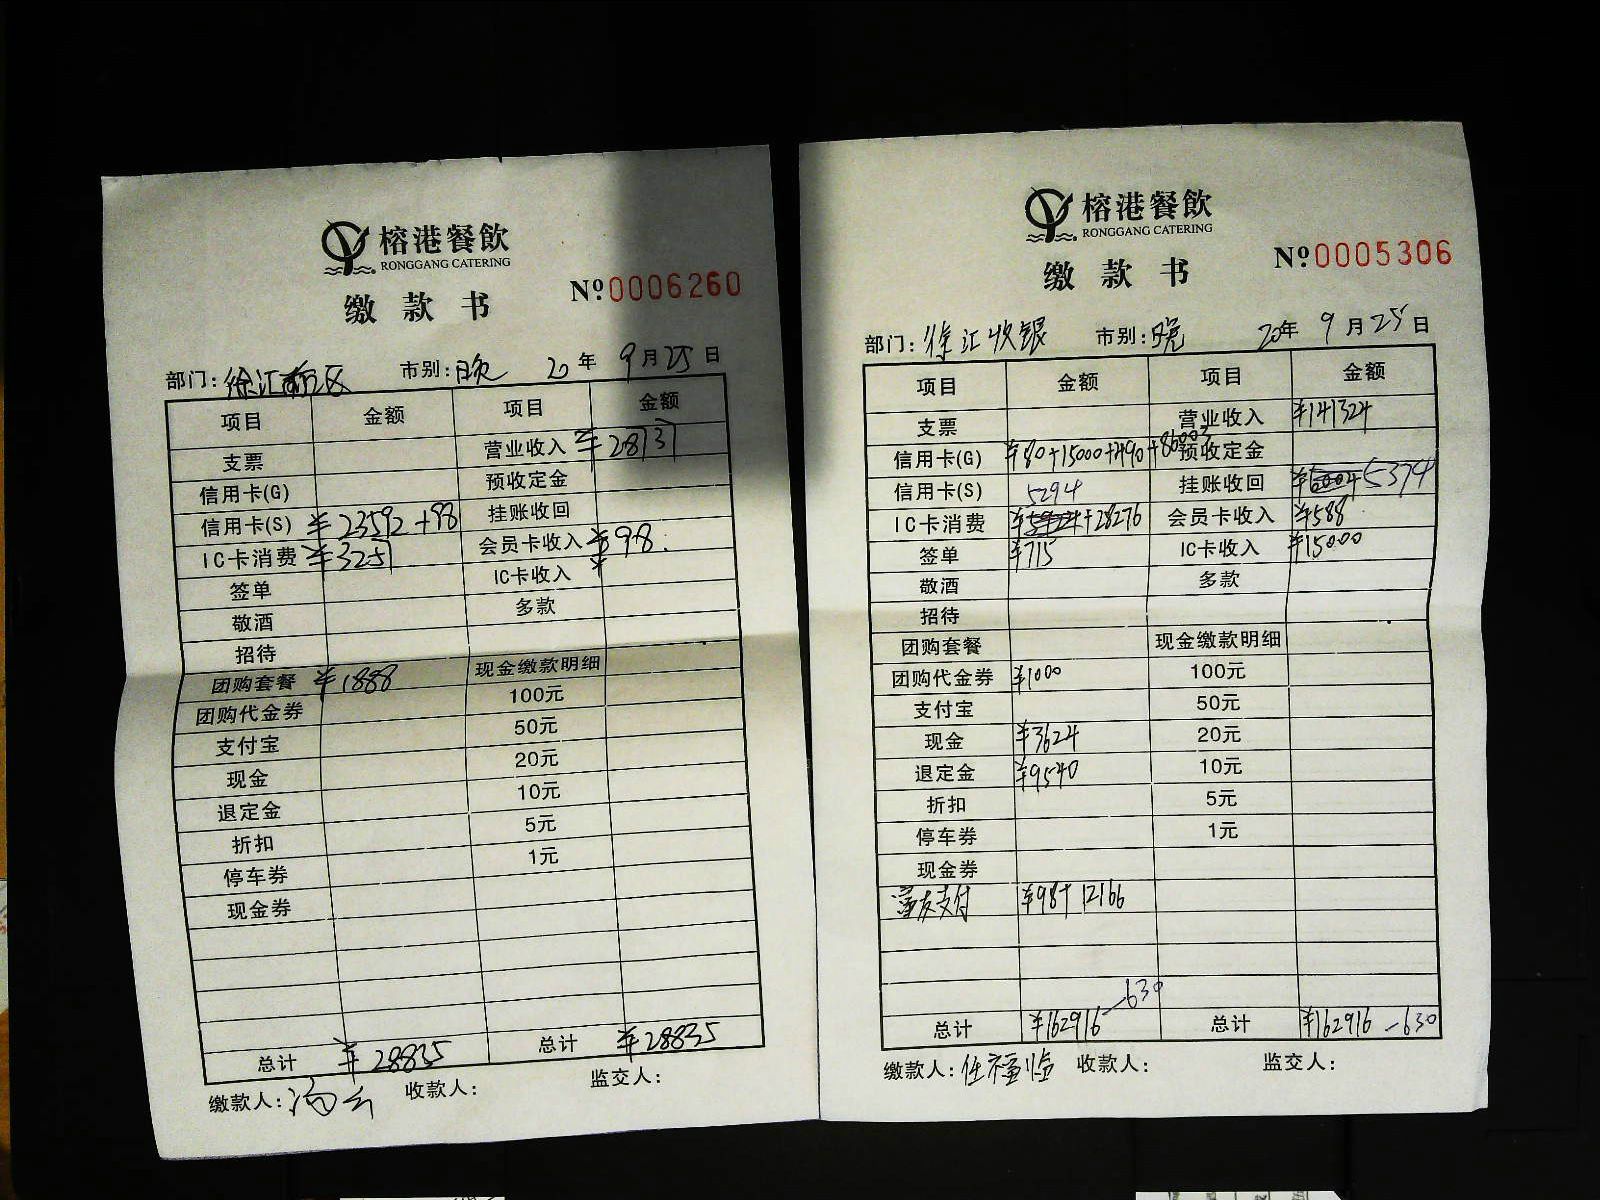 榕港餐飲
RONGGANG CATERING
缴款书
№0006260
部门：徐汇南区 市别：晚 20年9月25日
项目 金额 项目 金额
支票 营业收入 ¥28737
信用卡(G) 预收定金
信用卡(S) ¥23592+98 挂账收回
IC卡消费 ¥3257 会员卡收入 ¥98.
签单 IC卡收入 ¥
敬酒 多款
招待
团购套餐 ¥1888 现金缴款明细
团购代金券 100元
支付宝 50元
现金 20元
退定金 10元
折扣 5元
停车券 1元
现金券
总计 ¥28835 总计 ¥28835
缴款人：冯云 收款人： 监交人：
榕港餐飲
RONGGANG CATERING
缴款书
№0005306
部门：徐汇收银 市别：晚 20年9月25日
项目 金额 项目 金额
支票 营业收入 ¥141324
信用卡(G) ¥80+15000+490+86003 预收定金
信用卡(S) 挂账收回 ¥6004 5374
IC卡消费 5294 +28276 会员卡收入 ¥588
签单 ¥715 IC卡收入 ¥15000
敬酒 多款
招待
团购套餐 现金缴款明细
团购代金券 ¥1000 100元
支付宝 50元
现金 ¥3624 20元
退定金 ¥9540 10元
折扣 5元
停车券 1元
现金券
友支付 ¥98+12166
总计 ¥162916-630 总计 ¥162916-630
缴款人：任福临 收款人： 监交人：